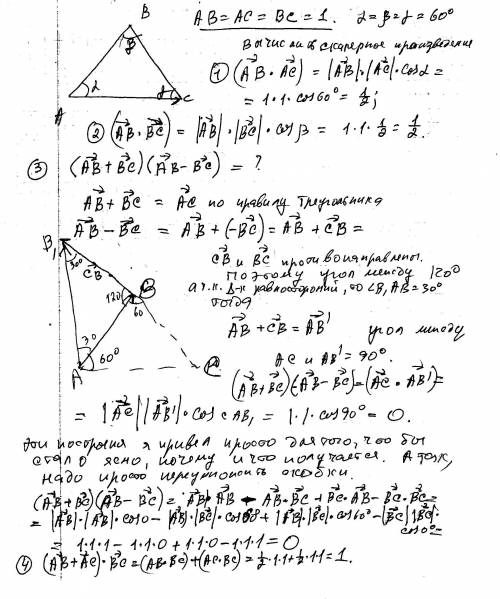 B
AB = AC = BC = 1. α = β = γ = 60°
β
Вычислить скалярное произведение
α γ
A C
① (AB · AC) = |AB|·|AC|·cosα =
= 1·1·cos60° = 1/2;
② (AB · BC) = |AB|·|BC|·cosβ = 1·1·1/2 = 1/2.
③ (AB + BC)(AB − BC) = ?
AB + BC = AC по правилу треугольника
AB − BC = AB + (−BC) = AB + CB =
B₁
CB и BC противонаправлены.
CB 30°
Поэтому угол между 120°
B
а т.к. Δ-к равносторонний, то <B, AB = 30°
120 60
тогда
AB + CB = AB' угол между
30
AC и AB' = 90°.
A 60° C
(AB + BC)(AB − BC) = (AC · AB') =
= |AC||AB'|·cos CAB₁ = 1·1·cos90° = 0.
Эти построения я привел просто для того, что бы
стало ясно, почему и что получается. А так,
надо просто перемножить скобки.
(AB + BC)(AB − BC) = AB · AB − AB · BC + BC · AB − BC · BC =
= |AB|·|AB|·cos0 − |AB|·|BC|·cos60° + |AB|·|BC|·cos60° − |BC||BC|·
cos0° =
= 1·1·1 − 1·1·0 + 1·1·0 − 1·1·1 = 0
④ (AB + AC)·BC = (AB·BC) + (AC·BC) = 1/2·1·1 + 1/2·1·1 = 1.